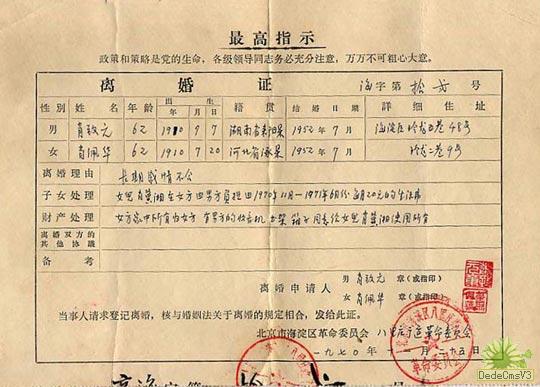 最高指示
政策和策略是党的生命，各级领导同志务必充分注意，万万不可粗心大意。
离婚证 海字第 拾 号
性别 姓名 年龄 出生 年月日 籍贯 结婚日期 详细住址
男 肖 元 62 1910 7 7 湖南省耒阳县 1952年7月 海淀区 48号
女 肖佩华 62 1910 7 20 河北省涿县 1952年7月 二巷9号
离婚理由 长期感情不合
子女处理 女儿肖黄湘在女方由男方负担由1970年11月—1971年6月份每月20元的生活费
财产处理 女方家中所有归女方 有男方的收音机 书架 箱子 女儿肖黄湘使用所有
离婚双方的其他协议
备考
离婚申请人 男 肖 元 章（或指印）
女 肖佩华 章（或指印）
当事人请求登记离婚，核与婚姻法关于离婚的规定相合，发给此证。
北京市海淀区革命委员会 八里庄街道革命委员会
一九七〇年十一月二十五日
革命委员会
DedeCmsV3